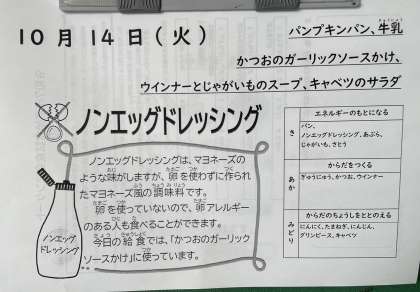 10月14日(火)
パンプキンパン、牛乳
かつおのガーリックソースかけ、
ウインナーとじゃがいものスープ、キャベツのサラダ
ノンエッグドレッシング
ノンエッグドレッシングは、マヨネーズの
ような味がしますが、卵を使わずに作られ
たマヨネーズ風の調味料です。
卵を使っていないので、卵アレルギー
のある人も食べることができます。
今日の給食では、「かつおのガーリック
ソースかけ」に使っています。
ノンエッグ
ドレッシング
エネルギーのもとになる
き
パン、
ノンエッグドレッシング、あぶら、
じゃがいも、さとう
からだをつくる
あか
ぎゅうにゅう、かつお、ウインナー
からだのちょうしをととのえる
みどり
にんにく、たまねぎ、にんじん、
グリンピース、キャベツ